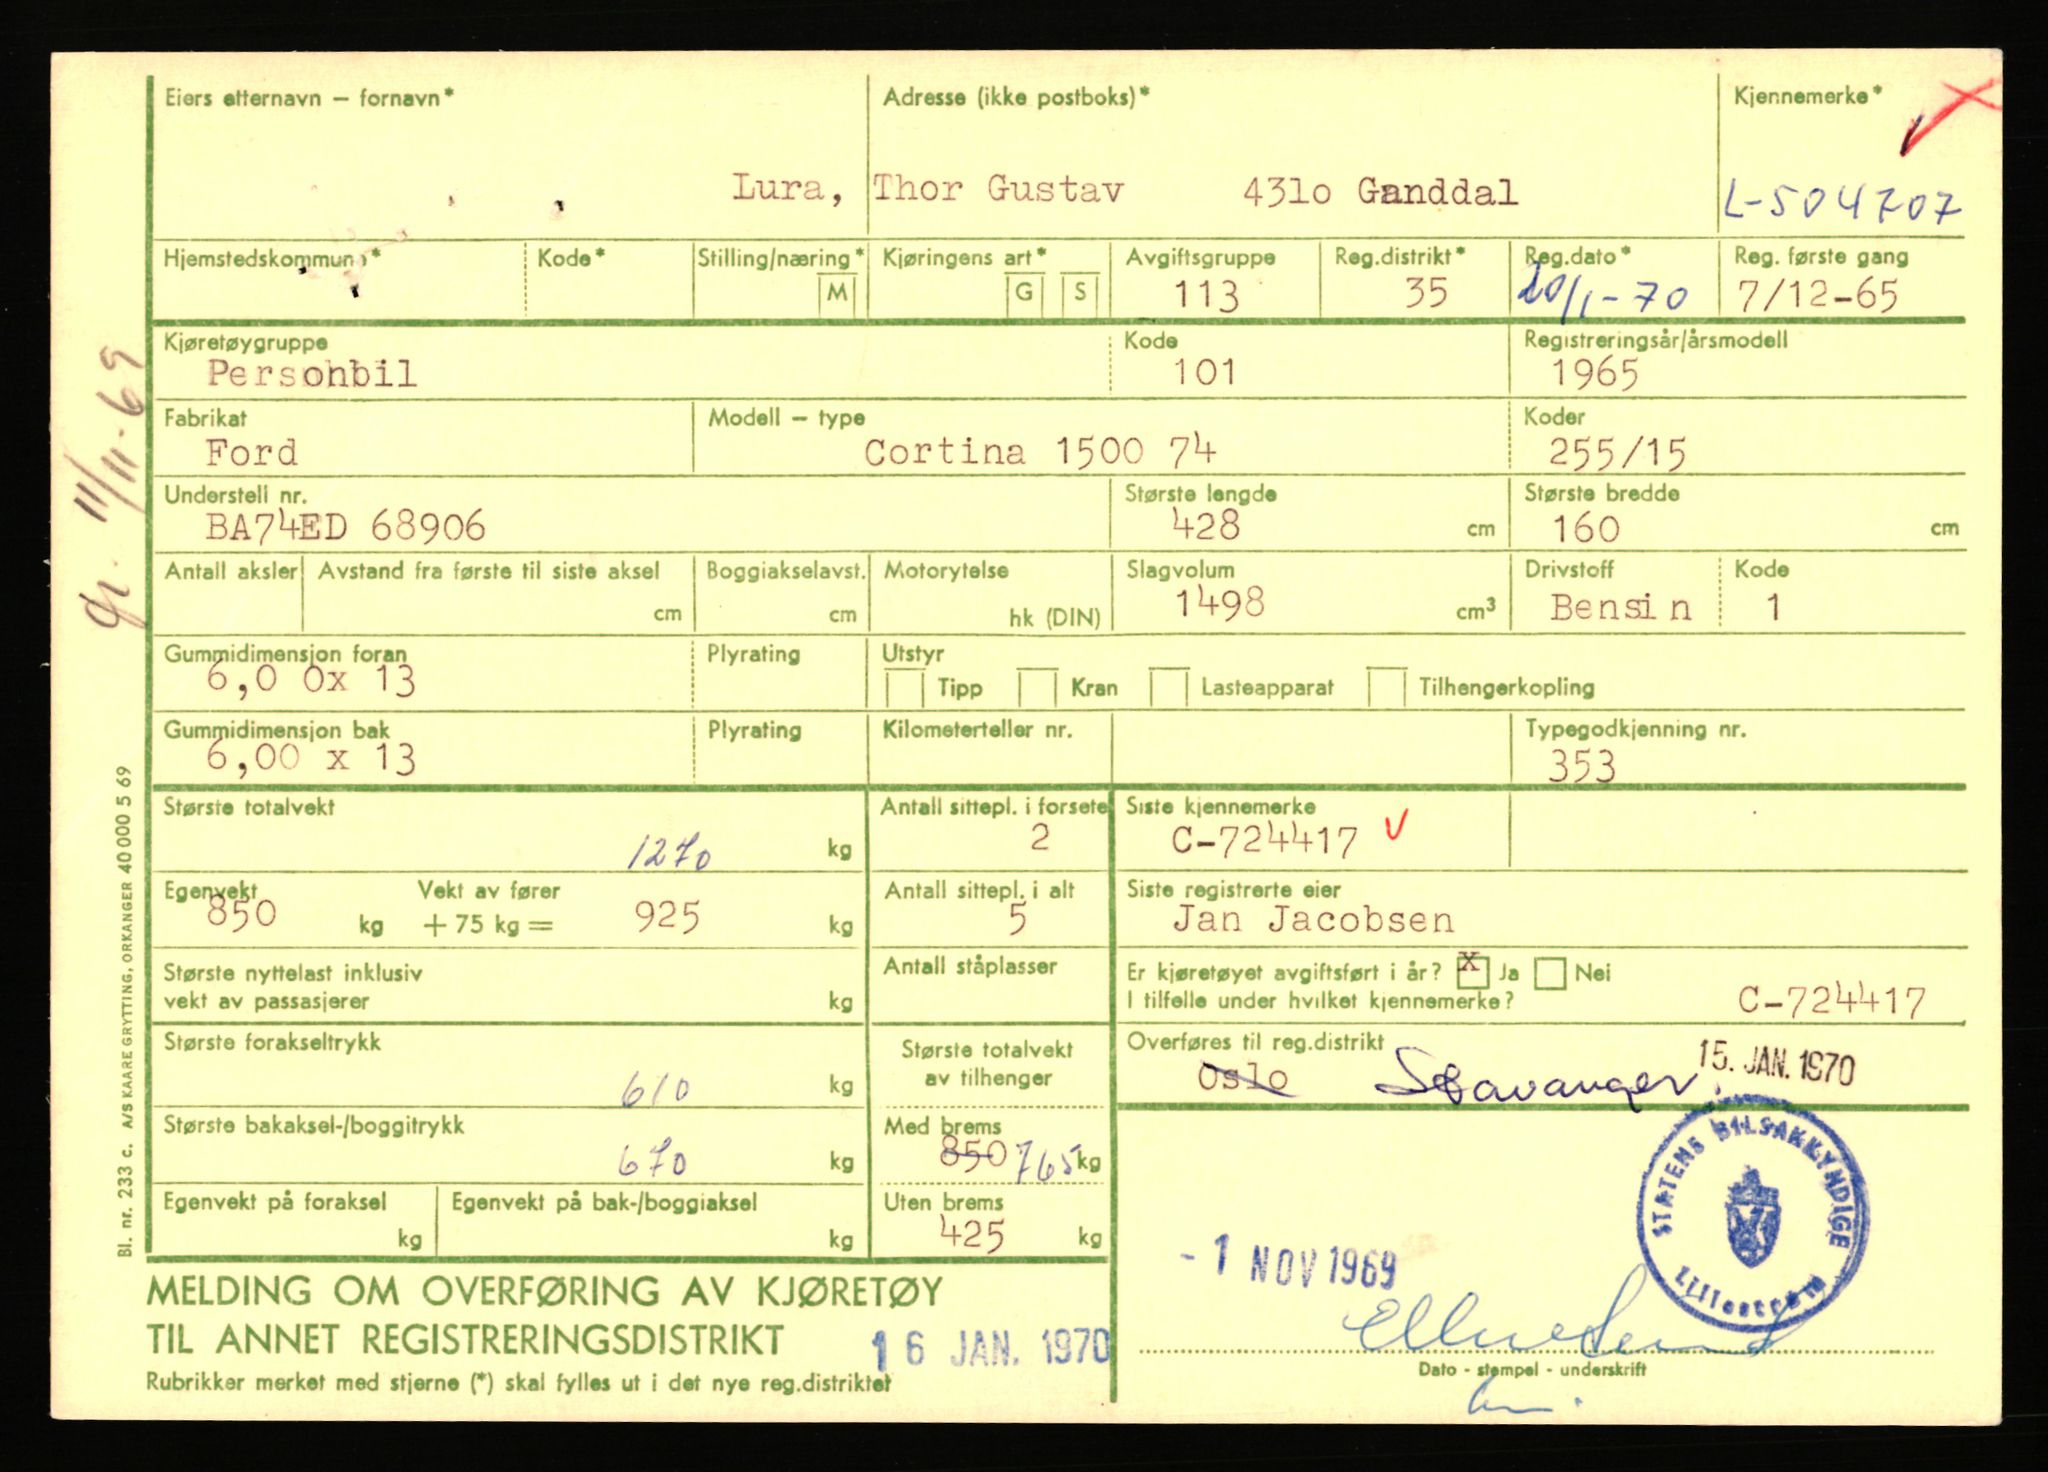 Eiers etternavn – fornavn* Adresse (ikke postboks)* Kjennemerke*
Lura, Thor Gustav 431o Ganddal L-504707
Hjemstedskommune* Kode* Stilling/næring* Kjøringens art* Avgiftsgruppe Reg.distrikt* Reg.dato* Reg. første gang
M G S 113 35 20/1-70 7/12-65
Kjøretøygruppe Kode Registreringsår/årsmodell
Personbil 101 1965
Fabrikat Modell – type Koder
Ford Cortina 1500 74 255/15
Understell nr. Største lengde Største bredde
BA74ED 68906 428 cm 160 cm
Antall aksler Avstand fra første til siste aksel Boggiakselavst. Motorytelse Slagvolum Drivstoff Kode
cm cm hk (DIN) 1498 cm³ Bensin 1
Gummidimensjon foran Plyrating Utstyr
6,0 0x 13 Tipp Kran Lasteapparat Tilhengerkopling
Gummidimensjon bak Plyrating Kilometerteller nr. Typegodkjenning nr.
6,00 x 13 353
Største totalvekt Antall sittepl. i forsete Siste kjennemerke
1270 kg 2 C-724417 V
Egenvekt Vekt av fører Antall sittepl. i alt Siste registrerte eier
850 kg + 75 kg = 925 kg 5 Jan Jacobsen
Største nyttelast inklusiv Antall ståplasser Er kjøretøyet avgiftsført i år? X Ja Nei
vekt av passasjerer kg I tilfelle under hvilket kjennemerke? C-724417
Største forakseltrykk Største totalvekt Overføres til reg.distrikt
610 kg av tilhenger Oslo Stavanger 15. JAN. 1970
Største bakaksel-/boggitrykk Med brems
670 kg 850 765 kg
Egenvekt på foraksel Egenvekt på bak-/boggiaksel Uten brems
kg kg 425 kg
STATENS BILSAKKYNDIGE
Lillestrøm
- 1 NOV 1969
MELDING OM OVERFØRING AV KJØRETØY
TIL ANNET REGISTRERINGSDISTRIKT 16 JAN. 1970
Dato - stempel - underskrift
Rubrikker merket med stjerne (*) skal fylles ut i det nye reg.distriktet
11/11-69
Bl. nr. 233 c. A/S KAARE GRYTTING, ORKANGER 40 000 5 69